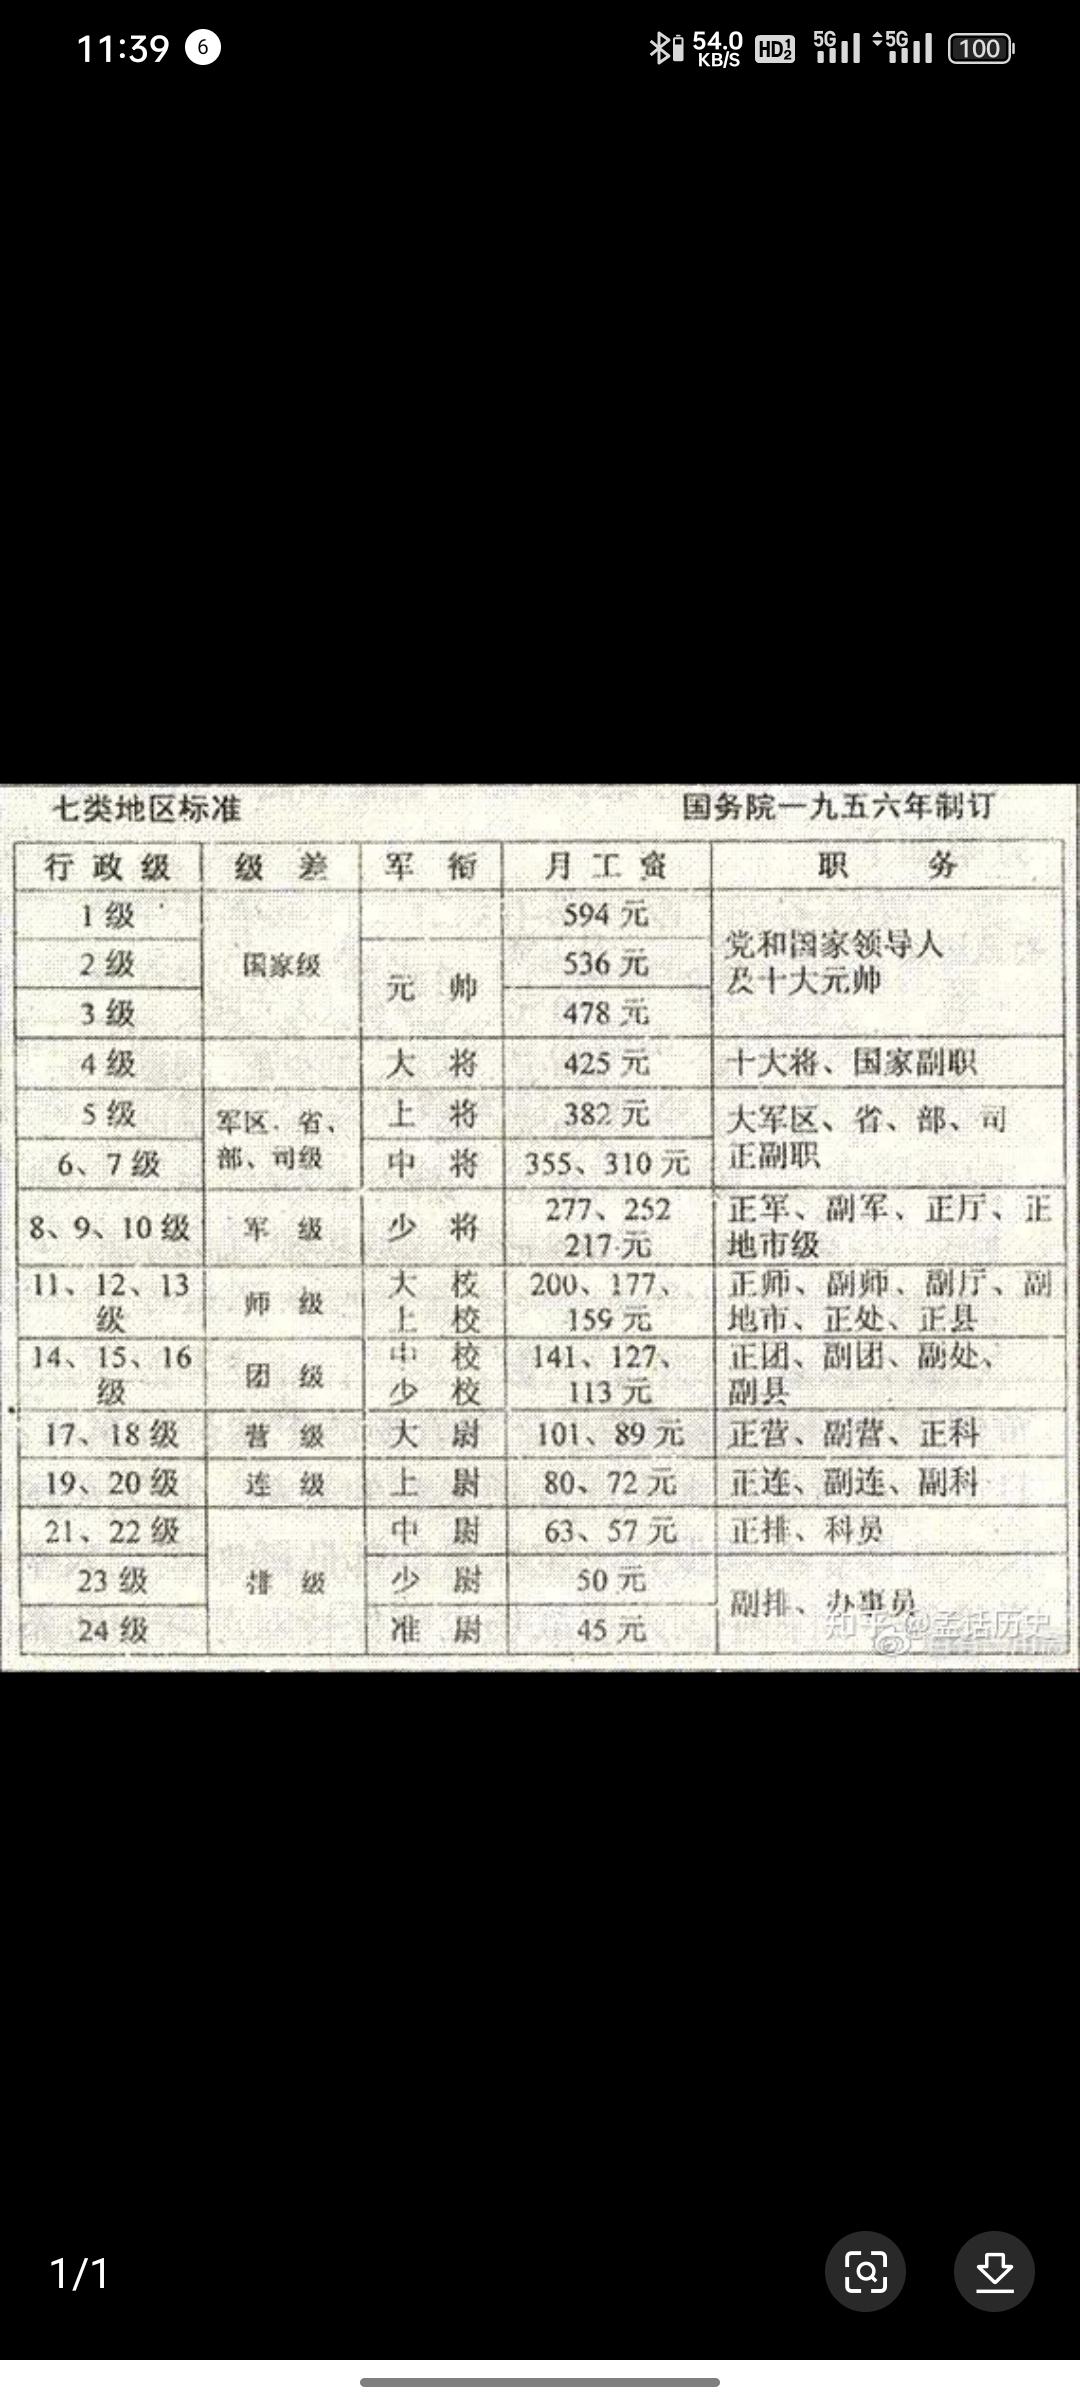 11:39 6 54.0 KB/S HD 1 2 5G 5G 100
七类地区标准 国务院一九五六年制订
行政级 级差 军衔 月工资 职务
1级 594元
2级 国家级 元帅 536元 党和国家领导人
3级 478元 及十大元帅
4级 大将 425元 十大将、国家副职
5级 军区、省、 上将 382元 大军区、省、部、司
6、7级 部、司级 中将 355、310元 正副职
8、9、10级 军级 少将 277、252 正军、副军、正厅、正
217元 地市级
11、12、13 师级 大校 200、177、 正师、副师、副厅、副
级 上校 159元 地市、正处、正县
14、15、16 团级 中校 141、127、 正团、副团、副处、
级 少校 113元 副县
17、18级 营级 大尉 101、89元 正营、副营、正科
19、20级 连级 上尉 80、72元 正连、副连、副科
21、22级 中尉 63、57元 正排、科员
23级 排级 少尉 50元 副排、办事员
24级 准尉 45元
知乎 @孟话历史
1/1